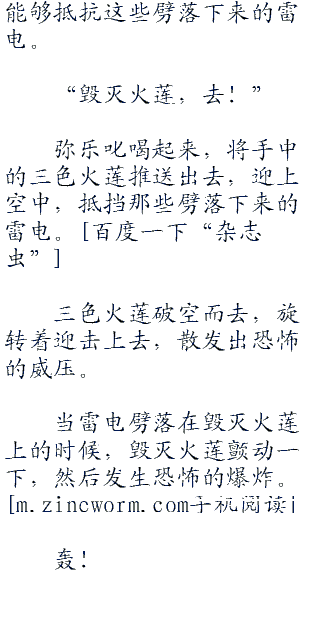 能够抵抗这些劈落下来的雷
电。
“毁灭火莲，去！”
弥乐叱喝起来，将手中
的三色火莲推送出去，迎上
空中，抵挡那些劈落下来的
雷电。[百度一下“杂志
虫”]
三色火莲破空而去，旋
转着迎击上去，散发出恐怖
的威压。
当雷电劈落在毁灭火莲
上的时候，毁灭火莲颤动一
下，然后发生恐怖的爆炸。
[m.zincworm.com手机阅读
轰！